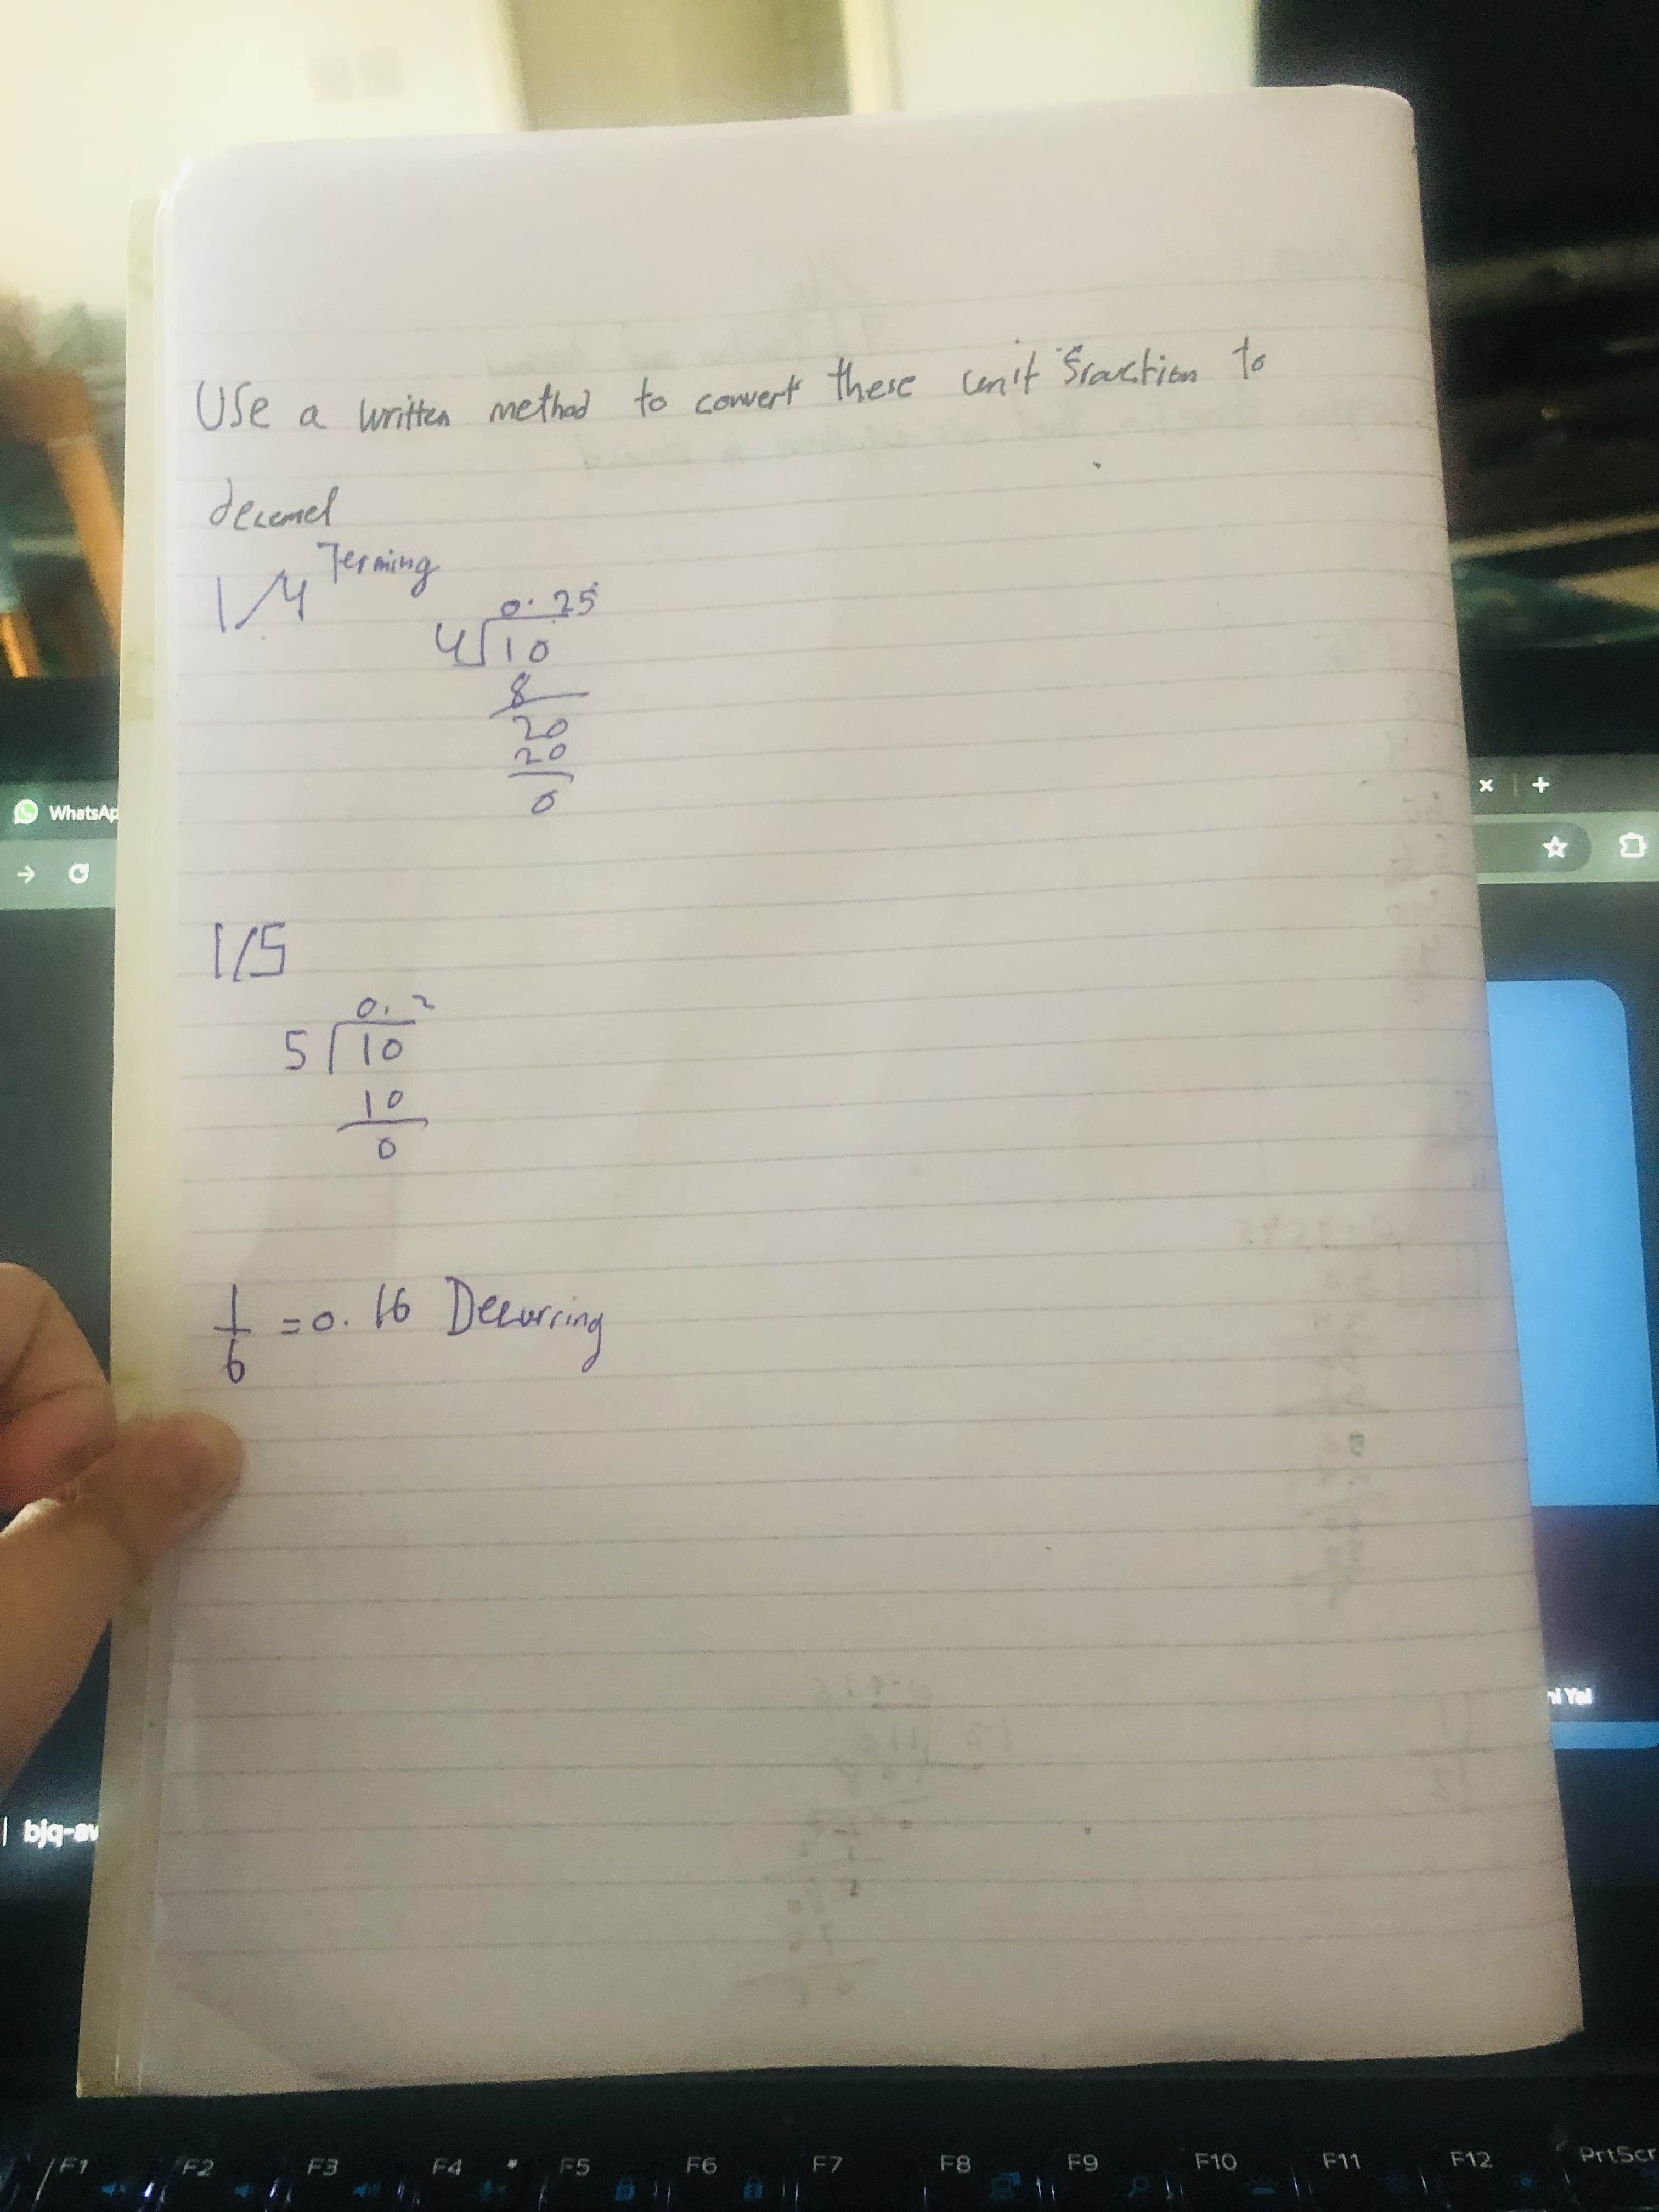 Use a written method to convert these unit fraction to
decemel
1/4 Terming
0.25
4 10
8
20
20
0
1/5
0.2
5 10
10
0
1
6 = 0.16 Decurring
WhatsAp
bjq-av
F1 F2 F3 F4 F5 F6 F7 F8 F9 F10 F11 F12 PrtScr